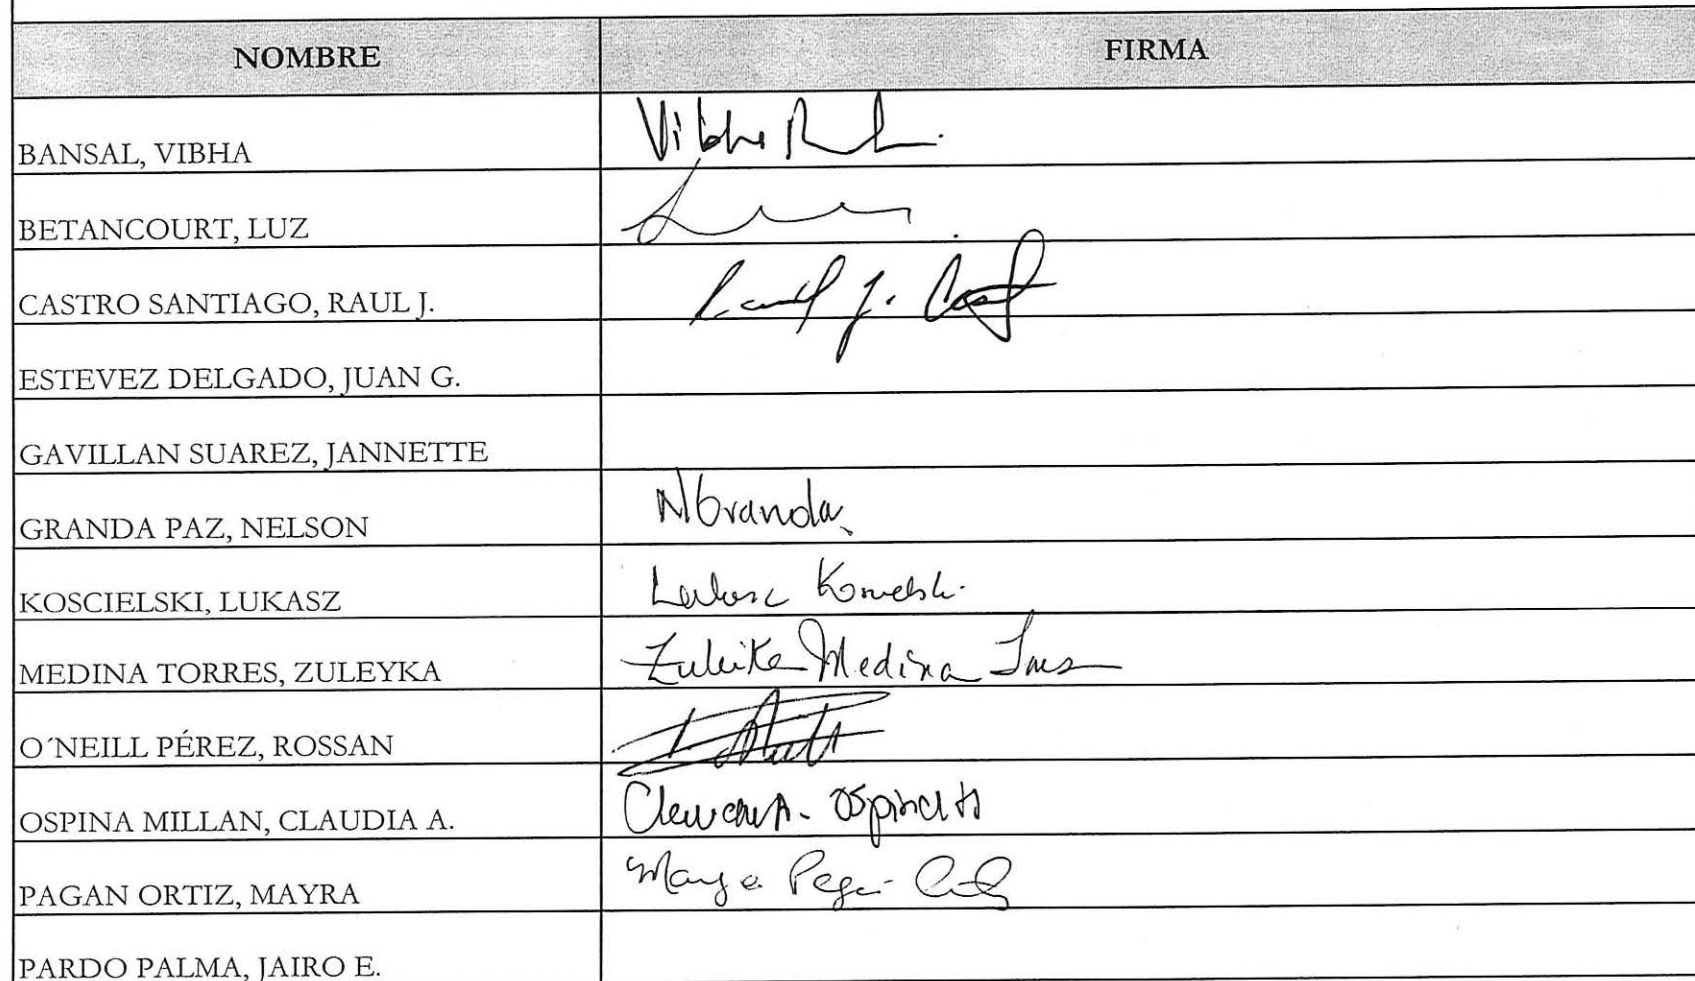 NOMBRE FIRMA
BANSAL, VIBHA Vibha
BETANCOURT, LUZ
CASTRO SANTIAGO, RAUL J. Raul J.
ESTEVEZ DELGADO, JUAN G.
GAVILLAN SUAREZ, JANNETTE
GRANDA PAZ, NELSON NGranda
KOSCIELSKI, LUKASZ
MEDINA TORRES, ZULEYKA Zuleika Medina
O´NEILL PÉREZ, ROSSAN
OSPINA MILLAN, CLAUDIA A. Ospina M
PAGAN ORTIZ, MAYRA Mayra
PARDO PALMA, JAIRO E.